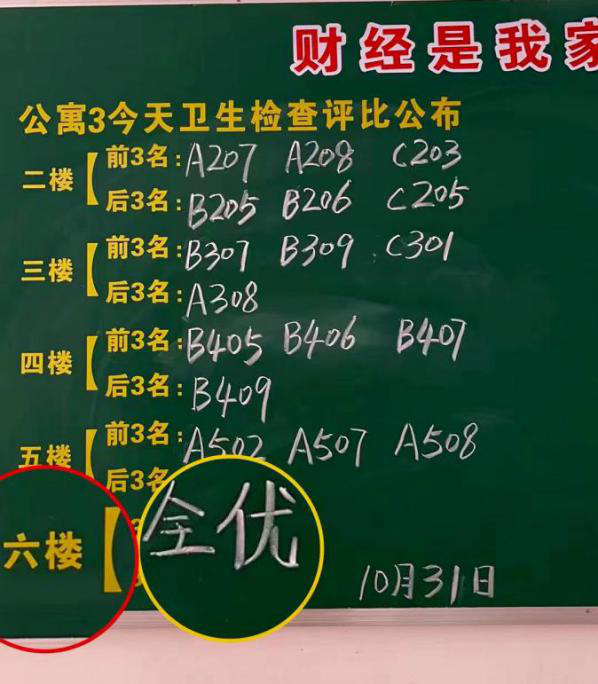 财经是我家
公寓3今天卫生检查评比公布
二楼
前3名:A207 A208 C203
后3名:B205 B206 C205
三楼
前3名:B307 B309 C301
后3名:A308
四楼
前3名:B405 B406 B407
后3名:B409
五楼
前3名:A502 A507 A508
后3名
六楼
全优
10月31日